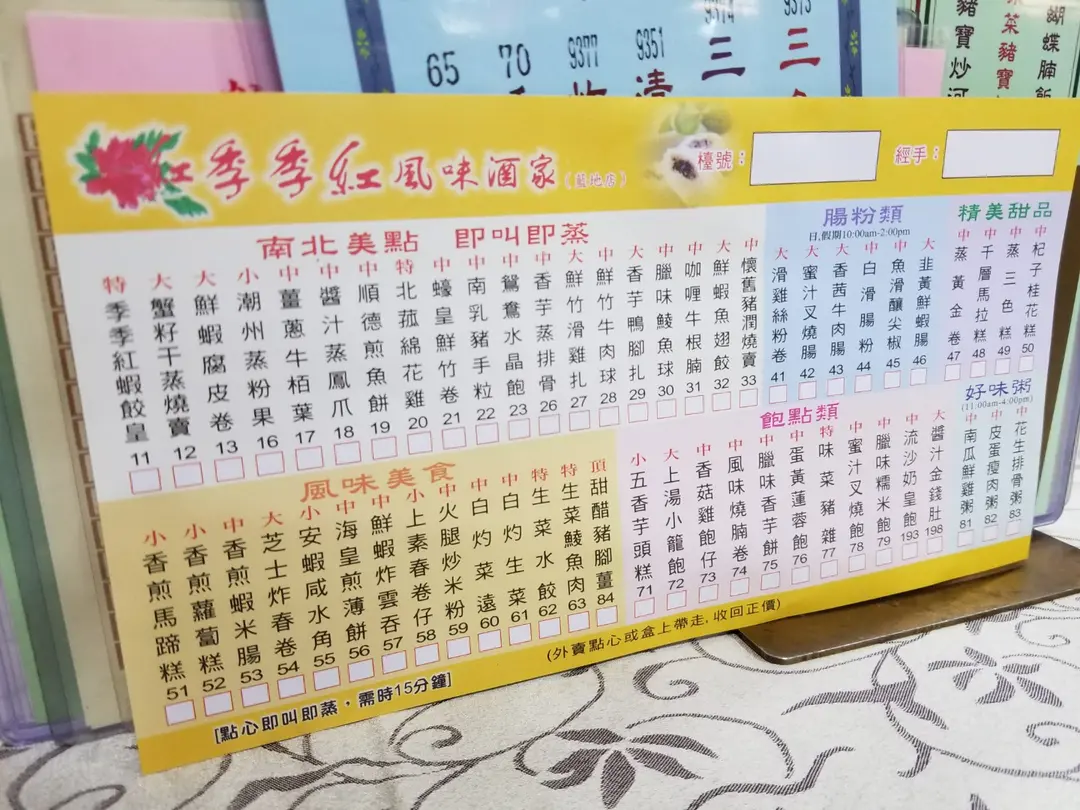 65
70
9377
9351
9314
9313
清
三
三
豬寶炒河
菜豬寶
蝴蝶腩飯
季季紅風味酒家(藍地店)
檯號：
經手：
南北美點 即叫即蒸
特 季季紅蝦餃皇 11
大 蟹籽干蒸燒賣 12
大 鮮蝦腐皮卷 13
小 潮州蒸粉果 16
中 薑蔥牛栢葉 17
中 醬汁蒸鳳爪 18
中 順德煎魚餅 19
特 北菰綿花雞 20
中 蠔皇鮮竹卷 21
中 南乳豬手粒 22
中 鴛鴦水晶飽 23
中 香芋蒸排骨 26
大 鮮竹滑雞扎 27
中 鮮竹牛肉球 28
大 香芋鴨腳扎 29
中 臘味鯪魚球 30
中 咖喱牛根腩 31
大 鮮蝦魚翅餃 32
中 懷舊豬潤燒賣 33
腸粉類
日,假期10:00am-2:00pm
大 滑雞絲粉卷 41
大 蜜汁叉燒腸 42
大 香茜牛肉腸 43
中 白滑腸粉 44
中 魚滑釀尖椒 45
大 韭黃鮮蝦腸 46
精美甜品
中 蒸黃金卷 47
中 千層馬拉糕 48
中 蒸三色糕 49
中 杞子桂花糕 50
風味美食
小 香煎馬蹄糕 51
小 香煎蘿蔔糕 52
中 香煎蝦米腸 53
大 芝士炸春卷 54
小 安蝦咸水角 55
中 海皇煎薄餅 56
中 鮮蝦炸雲吞 57
小 上素春卷仔 58
中 火腿炒米粉 59
中 白灼菜遠 60
中 白灼生菜 61
特 生菜水餃 62
特 生菜鯪魚肉 63
頂 甜醋豬腳薑 84
飽點類
小 五香芋頭糕 71
大 上湯小籠飽 72
中 香菇雞飽仔 73
中 風味燒腩卷 74
中 臘味香芋餅 75
中 蛋黃蓮蓉飽 76
特 味菜豬雜 77
中 蜜汁叉燒飽 78
中 臘味糯米飽 79
中 流沙奶皇飽 193
大 醬汁金錢肚 198
好味粥
(11:00am-4:00pm)
中 南瓜鮮雞粥 81
中 皮蛋瘦肉粥 82
中 花生排骨粥 83
[點心即叫即蒸，需時15分鐘]
(外賣點心或盒上帶走,收回正價)